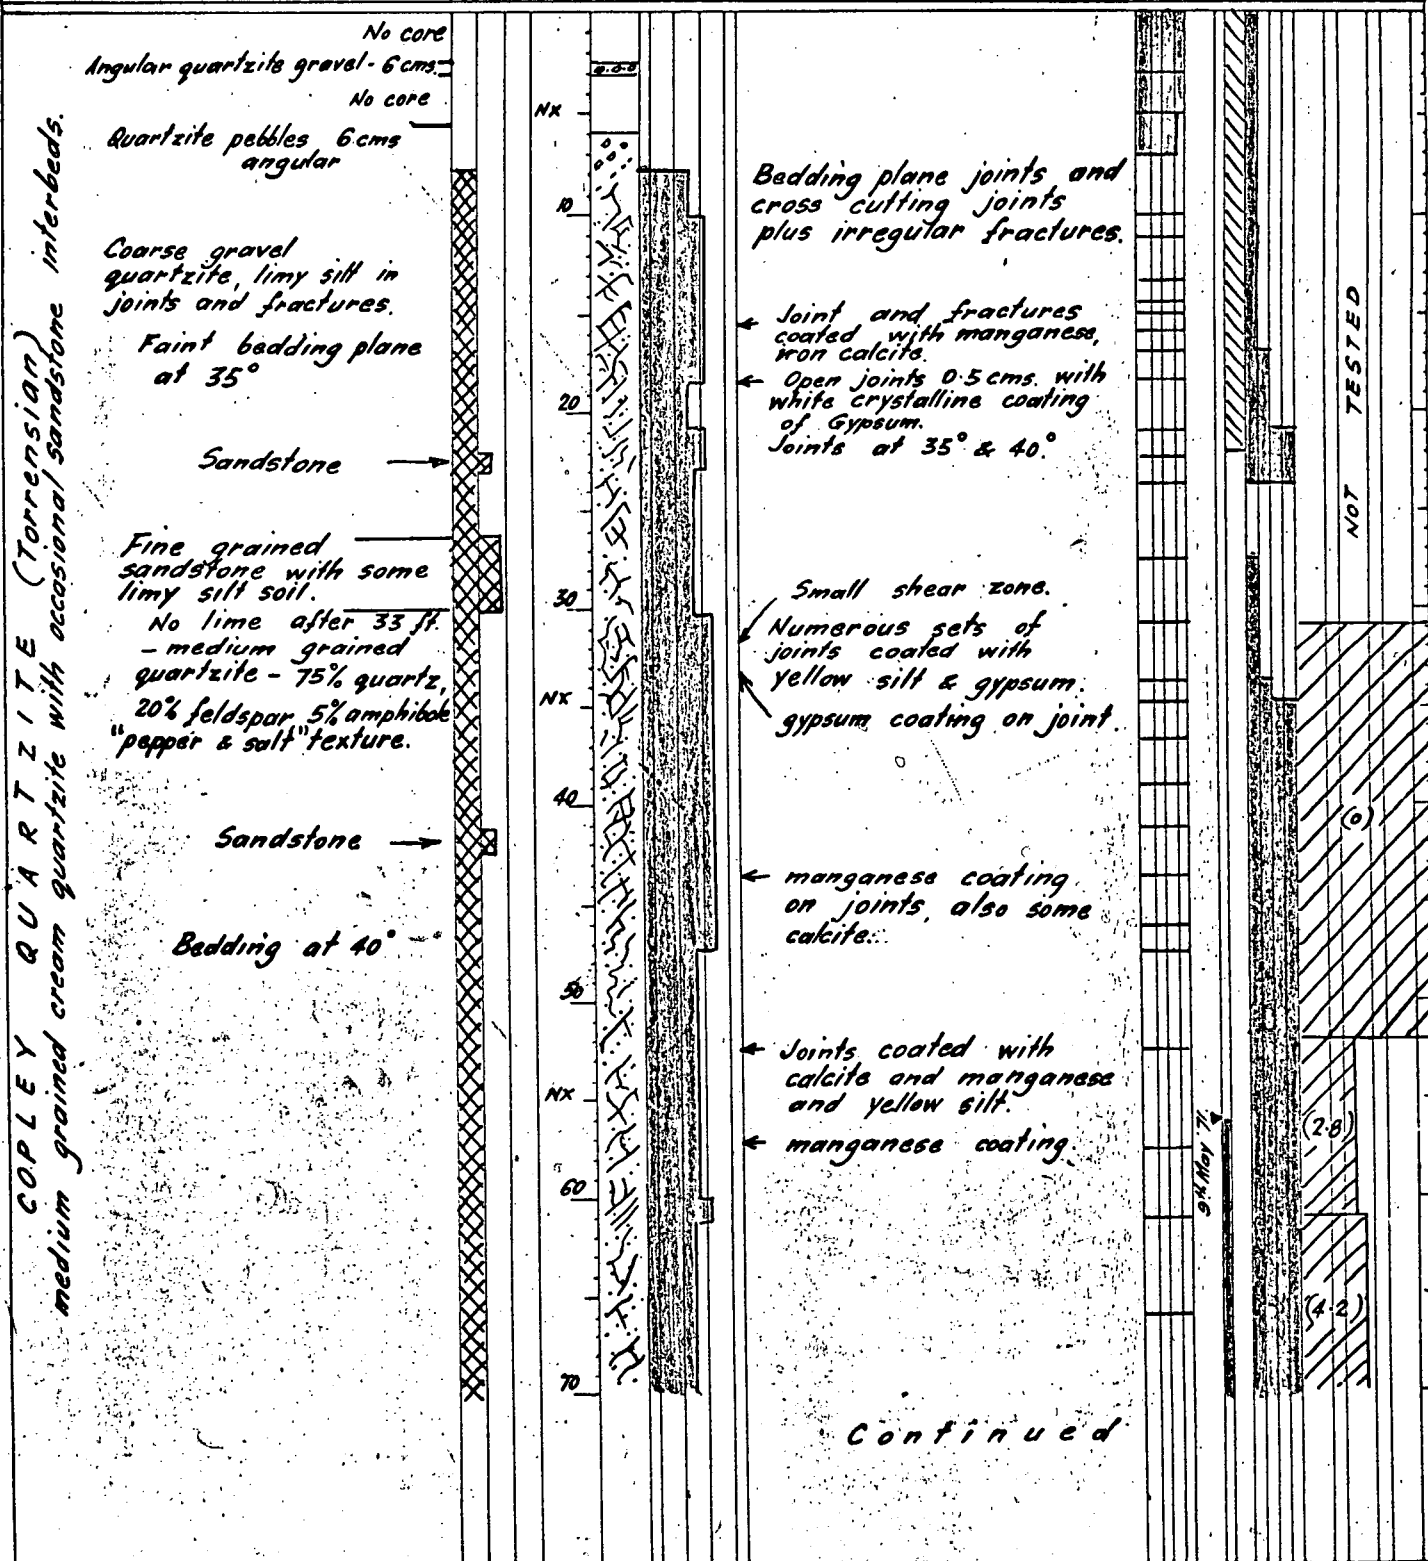 COPLEY QUARTZITE (Torrensian)
medium grained cream quartzite with occasional sandstone interbeds.
No core
Angular quartzite gravel - 6 cms.
No core
Quartzite pebbles 6 cms
angular
Coarse gravel
quartzite, limy silt in
joints and fractures.
Faint bedding plane
at 35°
Sandstone
Fine grained
sandstone with some
limy silt soil.
No lime after 33 ft.
- medium grained
quartzite - 75% quartz,
20% feldspar 5% amphibole
"pepper & salt" texture.
Sandstone
Bedding at 40°
NX
10
20
30
NX
40
50
NX
60
70
Bedding plane joints and
cross cutting joints
plus irregular fractures.
Joint and fractures
coated with manganese,
iron calcite.
Open joints 0.5 cms. with
white crystalline coating
of Gypsum.
Joints at 35° & 40°.
Small shear zone.
Numerous sets of
joints coated with
yellow silt & gypsum.
gypsum coating on joint.
manganese coating
on joints, also some
calcite.
Joints coated with
calcite and manganese
and yellow silt.
manganese coating.
Continued
9th May 71.
NOT TESTED
(0)
(2.8)
(4.2)